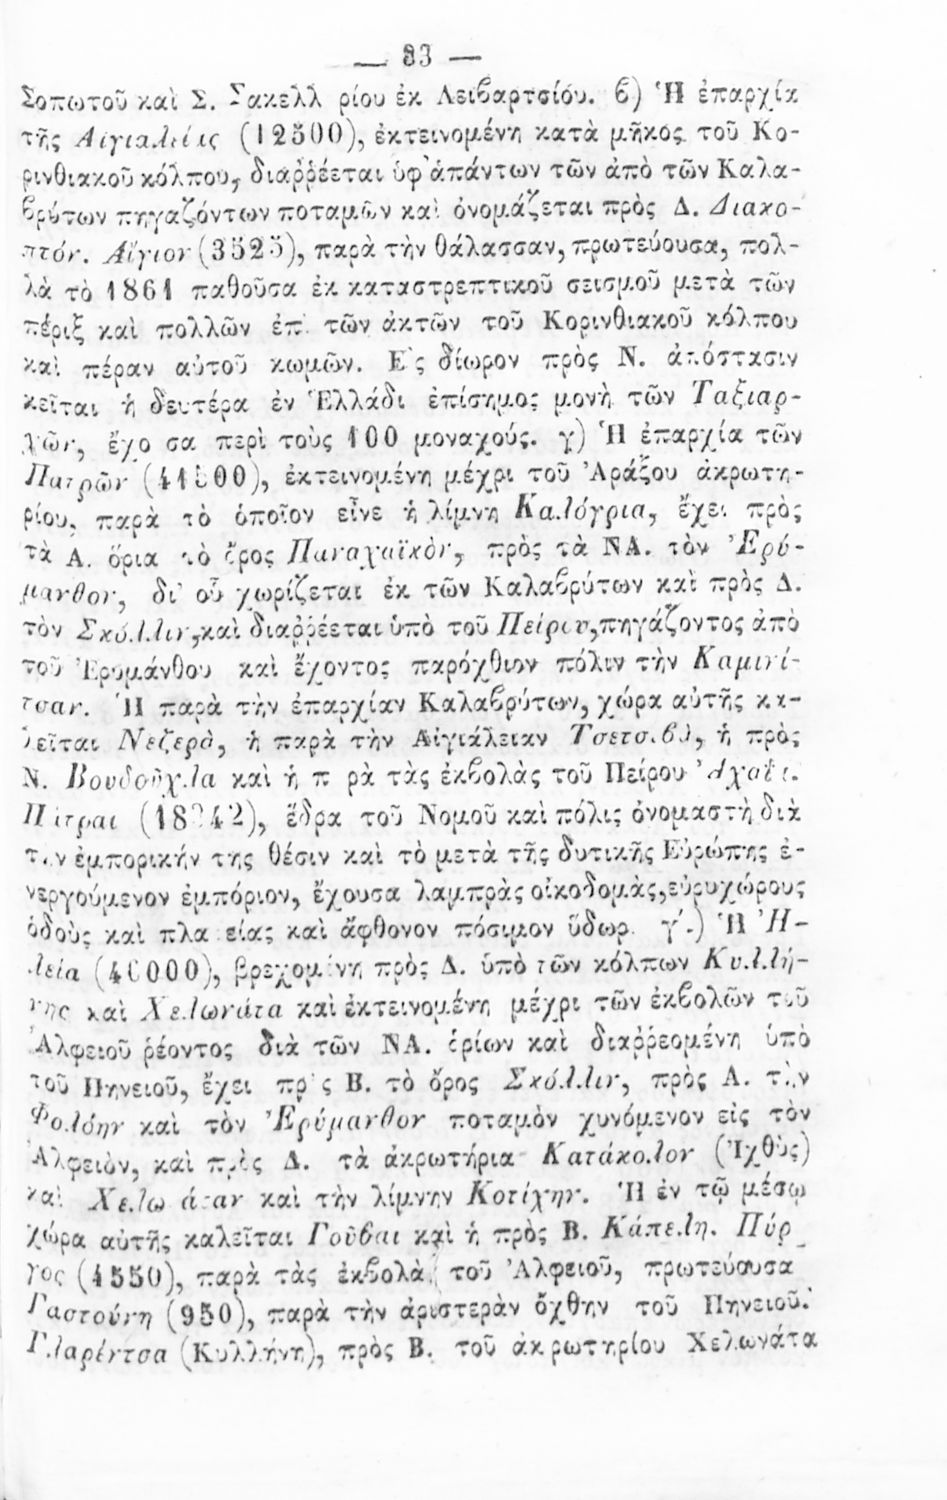 — 83 —
Σοπωτοῦ καὶ Σ. Σακελλ ρίου ἐκ Λειβαρτσίου. β) Ἡ ἐπαρχία
τῆς Αἰγιαλείας (12500), ἐκτεινομένη κατὰ μῆκος τοῦ Κο-
ρινθιακοῦ κόλπου, διαῤῥέεται ὑφ' ἁπάντων τῶν ἀπὸ τῶν Καλα-
βρύτων πηγαζόντων ποταμῶν καὶ ὀνομάζεται πρὸς Δ. Διακο-
πτόν. Αἴγιον (3525), παρὰ τὴν θάλασσαν, πρωτεύουσα, πολ-
λὰ τὸ 1861 παθοῦσα ἐκ καταστρεπτικοῦ σεισμοῦ μετὰ τῶν
πέριξ καὶ πολλῶν ἐπὶ τῶν ἀκτῶν τοῦ Κορινθιακοῦ κόλπου
καὶ πέραν αὐτοῦ κωμῶν. Ε ς δίωρον πρὸς Ν. ἀπόστασιν
κεῖται ἡ δευτέρα ἐν Ἑλλάδι ἐπίσημος μονὴ τῶν Ταξιαρ-
χῶν, ἔχο σα περὶ τοὺς 100 μοναχούς. γ) Ἡ ἐπαρχία τῶν
Πατρῶν ἐκτεινομένη μέχρι τοῦ Ἀράξου ἀκρωτη-
ρίου, παρὰ τὸ ὁποῖον εἶνε ἡ λίμνη Καλόγρια, ἔχει πρὸς
τὰ Α. ὅρια τὸ ὄρος Παναχαϊκὸν, πρὸς τὰ ΝΑ. τὸν Ἐρύ-
μανθον, δι' οὗ χωρίζεται ἐκ τῶν Καλαβρύτων καὶ πρὸς Δ.
τὸν Σκόλλιν, καὶ διαῤῥέεται ὑπὸ τοῦ Πείρου, πηγάζοντος ἀπὸ
τοῦ Ἐρυμάνθου καὶ ἔχοντος παρόχθιον πόλιν τὴν Καμινί-
τσαν. Ἡ παρὰ τὴν ἐπαρχίαν Καλαβρύτων, χώρα αὐτῆς κα-
λεῖται Νεζερὰ, ἡ παρὰ τὴν Αἰγιάλειαν ἡ πρὸς
Ν. Βουδοῦχλα καὶ ἡ π ρὰ τὰς ἐκβολὰς τοῦ Πείρου Ἀχαΐα.
Πάτραι (18 42), ἕδρα τοῦ Νομοῦ καὶ πόλις ὀνομαστὴ διὰ
τὴν ἐμπορικήν της θέσιν καὶ τὸ μετὰ τῆς δυτικῆς Εὐρώπης ἐ-
νεργούμενον ἐμπόριον, ἔχουσα λαμπρὰς οἰκοδομὰς, εὐρυχώρους
ὁδοὺς καὶ πλα είας καὶ ἄφθονον πόσιμον ὕδωρ. γ΄.) Ἡ Ἠ-
λεία (46000), βρεχομένη πρὸς Δ. ὑπὸ τῶν κόλπων Κυλλή-
νης καὶ Χελωνάτα καὶ ἐκτεινομένη μέχρι τῶν ἐκβολῶν τοῦ
Ἀλφειοῦ ῥέοντος διὰ τῶν ΝΑ. ὁρίων καὶ διαῤῥεομένη ὑπὸ
τοῦ Πηνειοῦ, ἔχει πρ ς Β. τὸ ὄρος Σκόλλιν, πρὸς Α. τὴν
Φολόην καὶ τὸν Ἐρύμανθον ποταμὸν χυνόμενον εἰς τὸν
Ἀλφειὸν, καὶ πρὸς Δ. τὰ ἀκρωτήρια Κατάκολον (Ἰχθὺς)
καὶ Χελω άταν καὶ τὴν λίμνην Κοτίχην. Ἡ ἐν τῷ μέσῳ
χώρα αὐτῆς καλεῖται Γοῦβαι καὶ ἡ πρὸς Β. Κάπελη. Πύρ_
γος (4550), παρὰ τὰς ἐκβολὰς τοῦ Ἀλφειοῦ, πρωτεύουσα
Γαστούνη (950), παρὰ τὴν ἀριστερὰν ὄχθην τοῦ Πηνειοῦ.
Γλαρέντσα (Κυλλήνη), πρὸς Β. τοῦ ἀκρωτηρίου Χελωνάτα